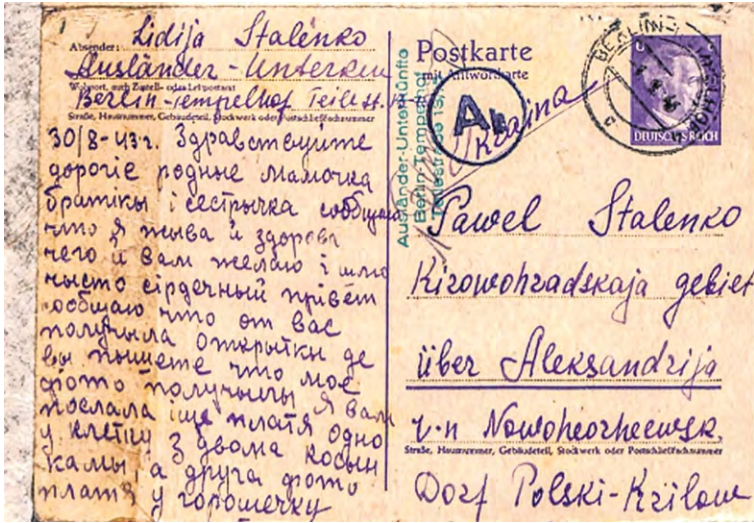 Absender:
Lidija Stalenko
Ausländer-Unterkun
Wohnort, auch Zustell- oder Leitpostamt
Berlin-Tempelhof Teilest.
Straße, Hausnummer, Gebäudeteil, Stockwerk oder Postschließfachnummer
30/8-43г. Здравствуйте
дорогіе родные мамочка
братікы і сестрычка сообщаю
что я жыва и здорова
чего и вам желаю і шлю
чысто сірдечный прівет
сообщаю что от вас
получыла открытки де
вы пышете что мое
фото получылы я вам
послала іще платя одно
у клетку з двома косын
камы а друга фото
платя у горошечку
Postkarte
mit Antwortkarte
Ukraina
BERLIN-TEMPELHOF
DEUTSCHES REICH
Ausländer-Unterkünfte
Berlin-Tempelhof
Teilestraße
Pawel Stalenko
Kirowohradskaja gebiet
über Aleksandrija
r-n Nowoheorheewsk
Straße, Hausnummer, Gebäudeteil, Stockwerk oder Postschließfachnummer
Dorf Polski-Krilow